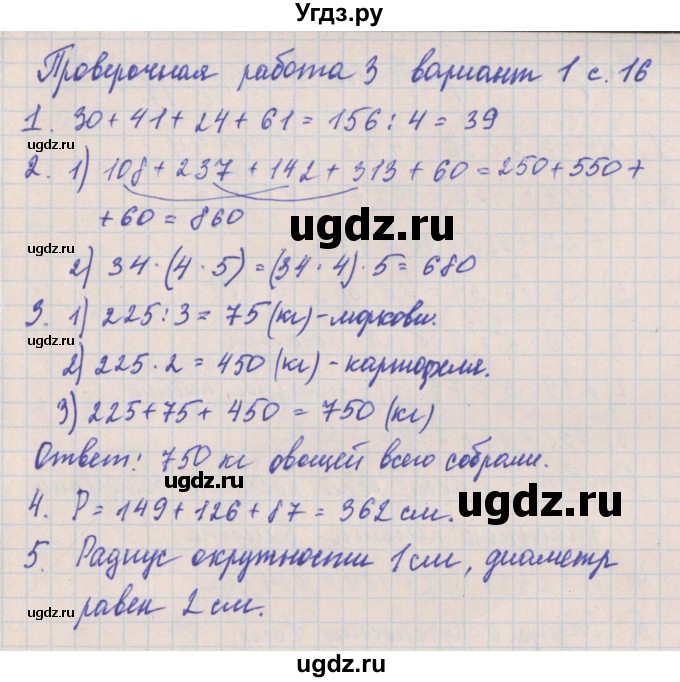 Угдз.ру
Проверочная работа 3 вариант 1 с. 16
1. 30+41+24+61=156:4=39
ugdz.ru
2. 1) 108+237+142+313+60=250+550+
+60=860
ugdz.ru
ugdz.ru
2) 34·(4·5)=(34·4)·5=680
3. 1) 225:3=75(кг)-моркови.
ugdz.ru
2) 225·2=450(кг)-картофеля.
3) 225+75+450=750(кг)
ugdz.ru
Ответ: 750 кг овощей всего собрали.
ugdz.ru
ugdz.ru
4. Р=149+126+87=362см.
5. Радиус окружности 1см, диаметр
равен 2см.
ugdz.ru
ugdz.ru